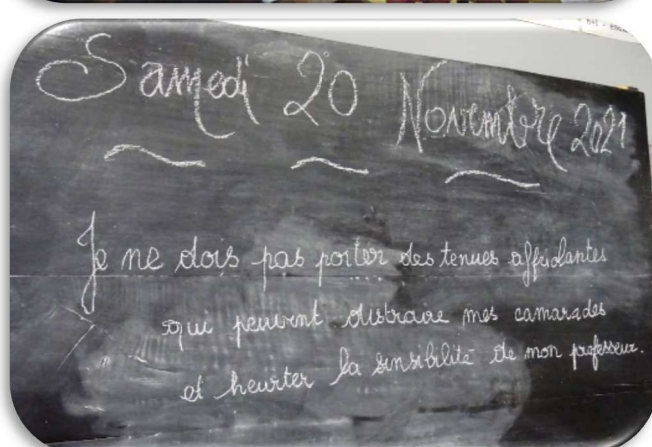 Samedi 20 Novembre 2021
Je ne dois pas porter des tenues affriolantes
qui peuvent distraire mes camarades
et heurter la sensibilité de mon professeur.